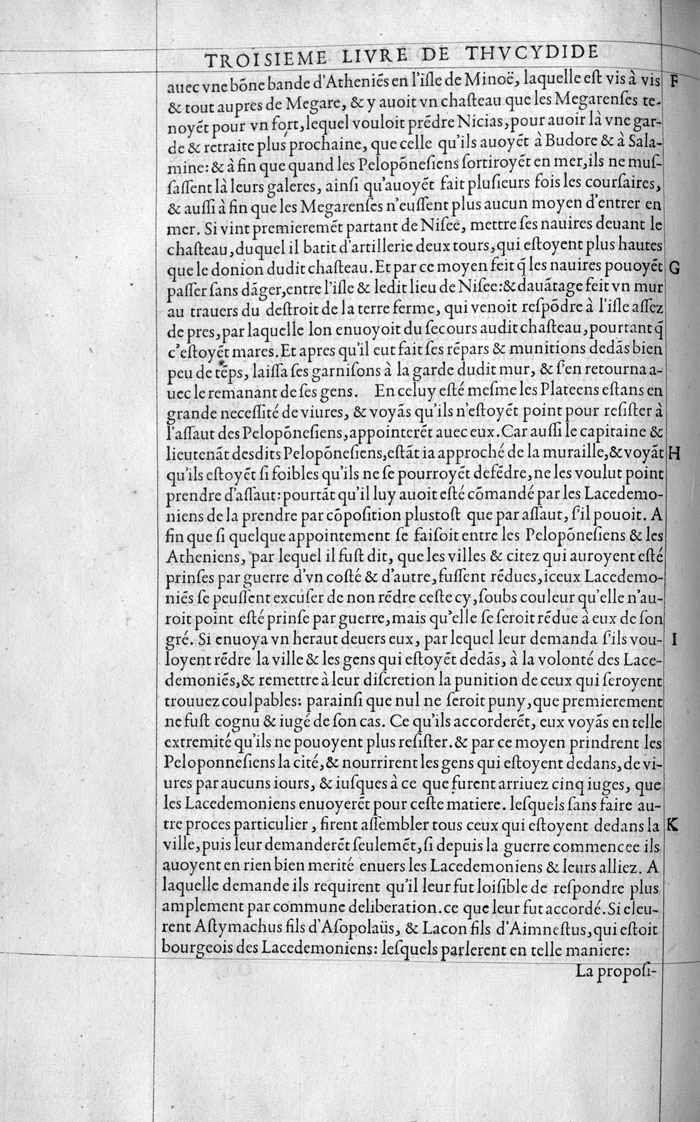 TROISIEME LIVRE DE THVCYDIDE
auec vne bōne bande d'Atheniēs en l'iſle de Minoë, laquelle eſt vis à vis F
& tout aupres de Megare, & y auoit vn chaſteau que les Megarenſes te-
noyēt pour vn fort, lequel vouloit prēdre Nicias, pour auoir là vne gar-
de & retraite plus prochaine, que celle qu'ils auoyēt à Budore & à Sala-
mine: & à fin que quand les Pelopōneſiens ſortiroyēt en mer, ils ne muſ-
ſaſſent là leurs galeres, ainſi qu'auoyēt fait pluſieurs fois les courſaires,
& auſſi à fin que les Megarenſes n'euſſent plus aucun moyen d'entrer en
mer. Si vint premieremēt partant de Niſee, mettre ſes nauires deuant le
chaſteau, duquel il batit d'artillerie deux tours, qui eſtoyent plus hautes
que le donion dudit chaſteau. Et par ce moyen feit q̄ les nauires pouoyēt G
paſſer ſans dāger, entre l'iſle & ledit lieu de Niſee: & dauātage feit vn mur
au trauers du deſtroit de la terre ferme, qui venoit reſpōdre à l'iſle aſſez
de pres, par laquelle lon enuoyoit du ſecours audit chaſteau, pourtant q̄
c'eſtoyēt mares. Et apres qu'il eut fait ſes rēpars & munitions dedās bien
peu de tēps, laiſſa ſes garniſons à la garde dudit mur, & ſ'en retourna a-
uec le remanant de ſes gens. En celuy eſté meſme les Plateens eſtans en
grande neceſſité de viures, & voyās qu'ils n'eſtoyēt point pour reſiſter à
l'aſſaut des Pelopōneſiens, appointerēt auec eux. Car auſſi le capitaine &
lieutenāt deſdits Pelopōneſiens, eſtāt ia approché de la muraille, & voyāt H
qu'ils eſtoyēt ſi foibles qu'ils ne ſe pourroyēt defēdre, ne les voulut point
prendre d'aſſaut: pourtāt qu'il luy auoit eſté cōmandé par les Lacedemo-
niens de la prendre par cōpoſition pluſtoſt que par aſſaut, ſ'il pouoit. A
fin que ſi quelque appointement ſe faiſoit entre les Pelopōneſiens & les
Atheniens, par lequel il fuſt dit, que les villes & citez qui auroyent eſté
prinſes par guerre d'vn coſté & d'autre, fuſſent rēdues, iceux Lacedemo-
niēs ſe peuſſent excuſer de non rēdre ceſte cy, ſoubs couleur qu'elle n'au-
roit point eſté prinſe par guerre, mais qu'elle ſe ſeroit rēdue à eux de ſon
gré. Si enuoya vn heraut deuers eux, par lequel leur demanda ſ'ils vou- I
loyent rēdre la ville & les gens qui eſtoyēt dedās, à la volonté des Lace-
demoniēs, & remettre à leur diſcretion la punition de ceux qui ſeroyent
trouuez coulpables: parainſi que nul ne ſeroit puny, que premierement
ne fuſt cognu & iugé de ſon cas. Ce qu'ils accorderēt, eux voyās en telle
extremité qu'ils ne pouoyent plus reſiſter. & par ce moyen prindrent les
Peloponneſiens la cité, & nourrirent les gens qui eſtoyent dedans, de vi-
ures par aucuns iours, & iuſques à ce que furent arriuez cinq iuges, que
les Lacedemoniens enuoyerēt pour ceſte matiere. leſquels ſans faire au-
tre proces particulier, firent aſſembler tous ceux qui eſtoyent dedans la K
ville, puis leur demanderēt ſeulemēt, ſi depuis la guerre commencee ils
auoyent en rien bien merité enuers les Lacedemoniens & leurs alliez. A
laquelle demande ils requirent qu'il leur fut loiſible de reſpondre plus
amplement par commune deliberation. ce que leur fut accordé. Si eleu-
rent Aſtymachus fils d'Aſopolaüs, & Lacon fils d'Aimneſtus, qui eſtoit
bourgeois des Lacedemoniens: leſquels parlerent en telle maniere:
La propoſi-